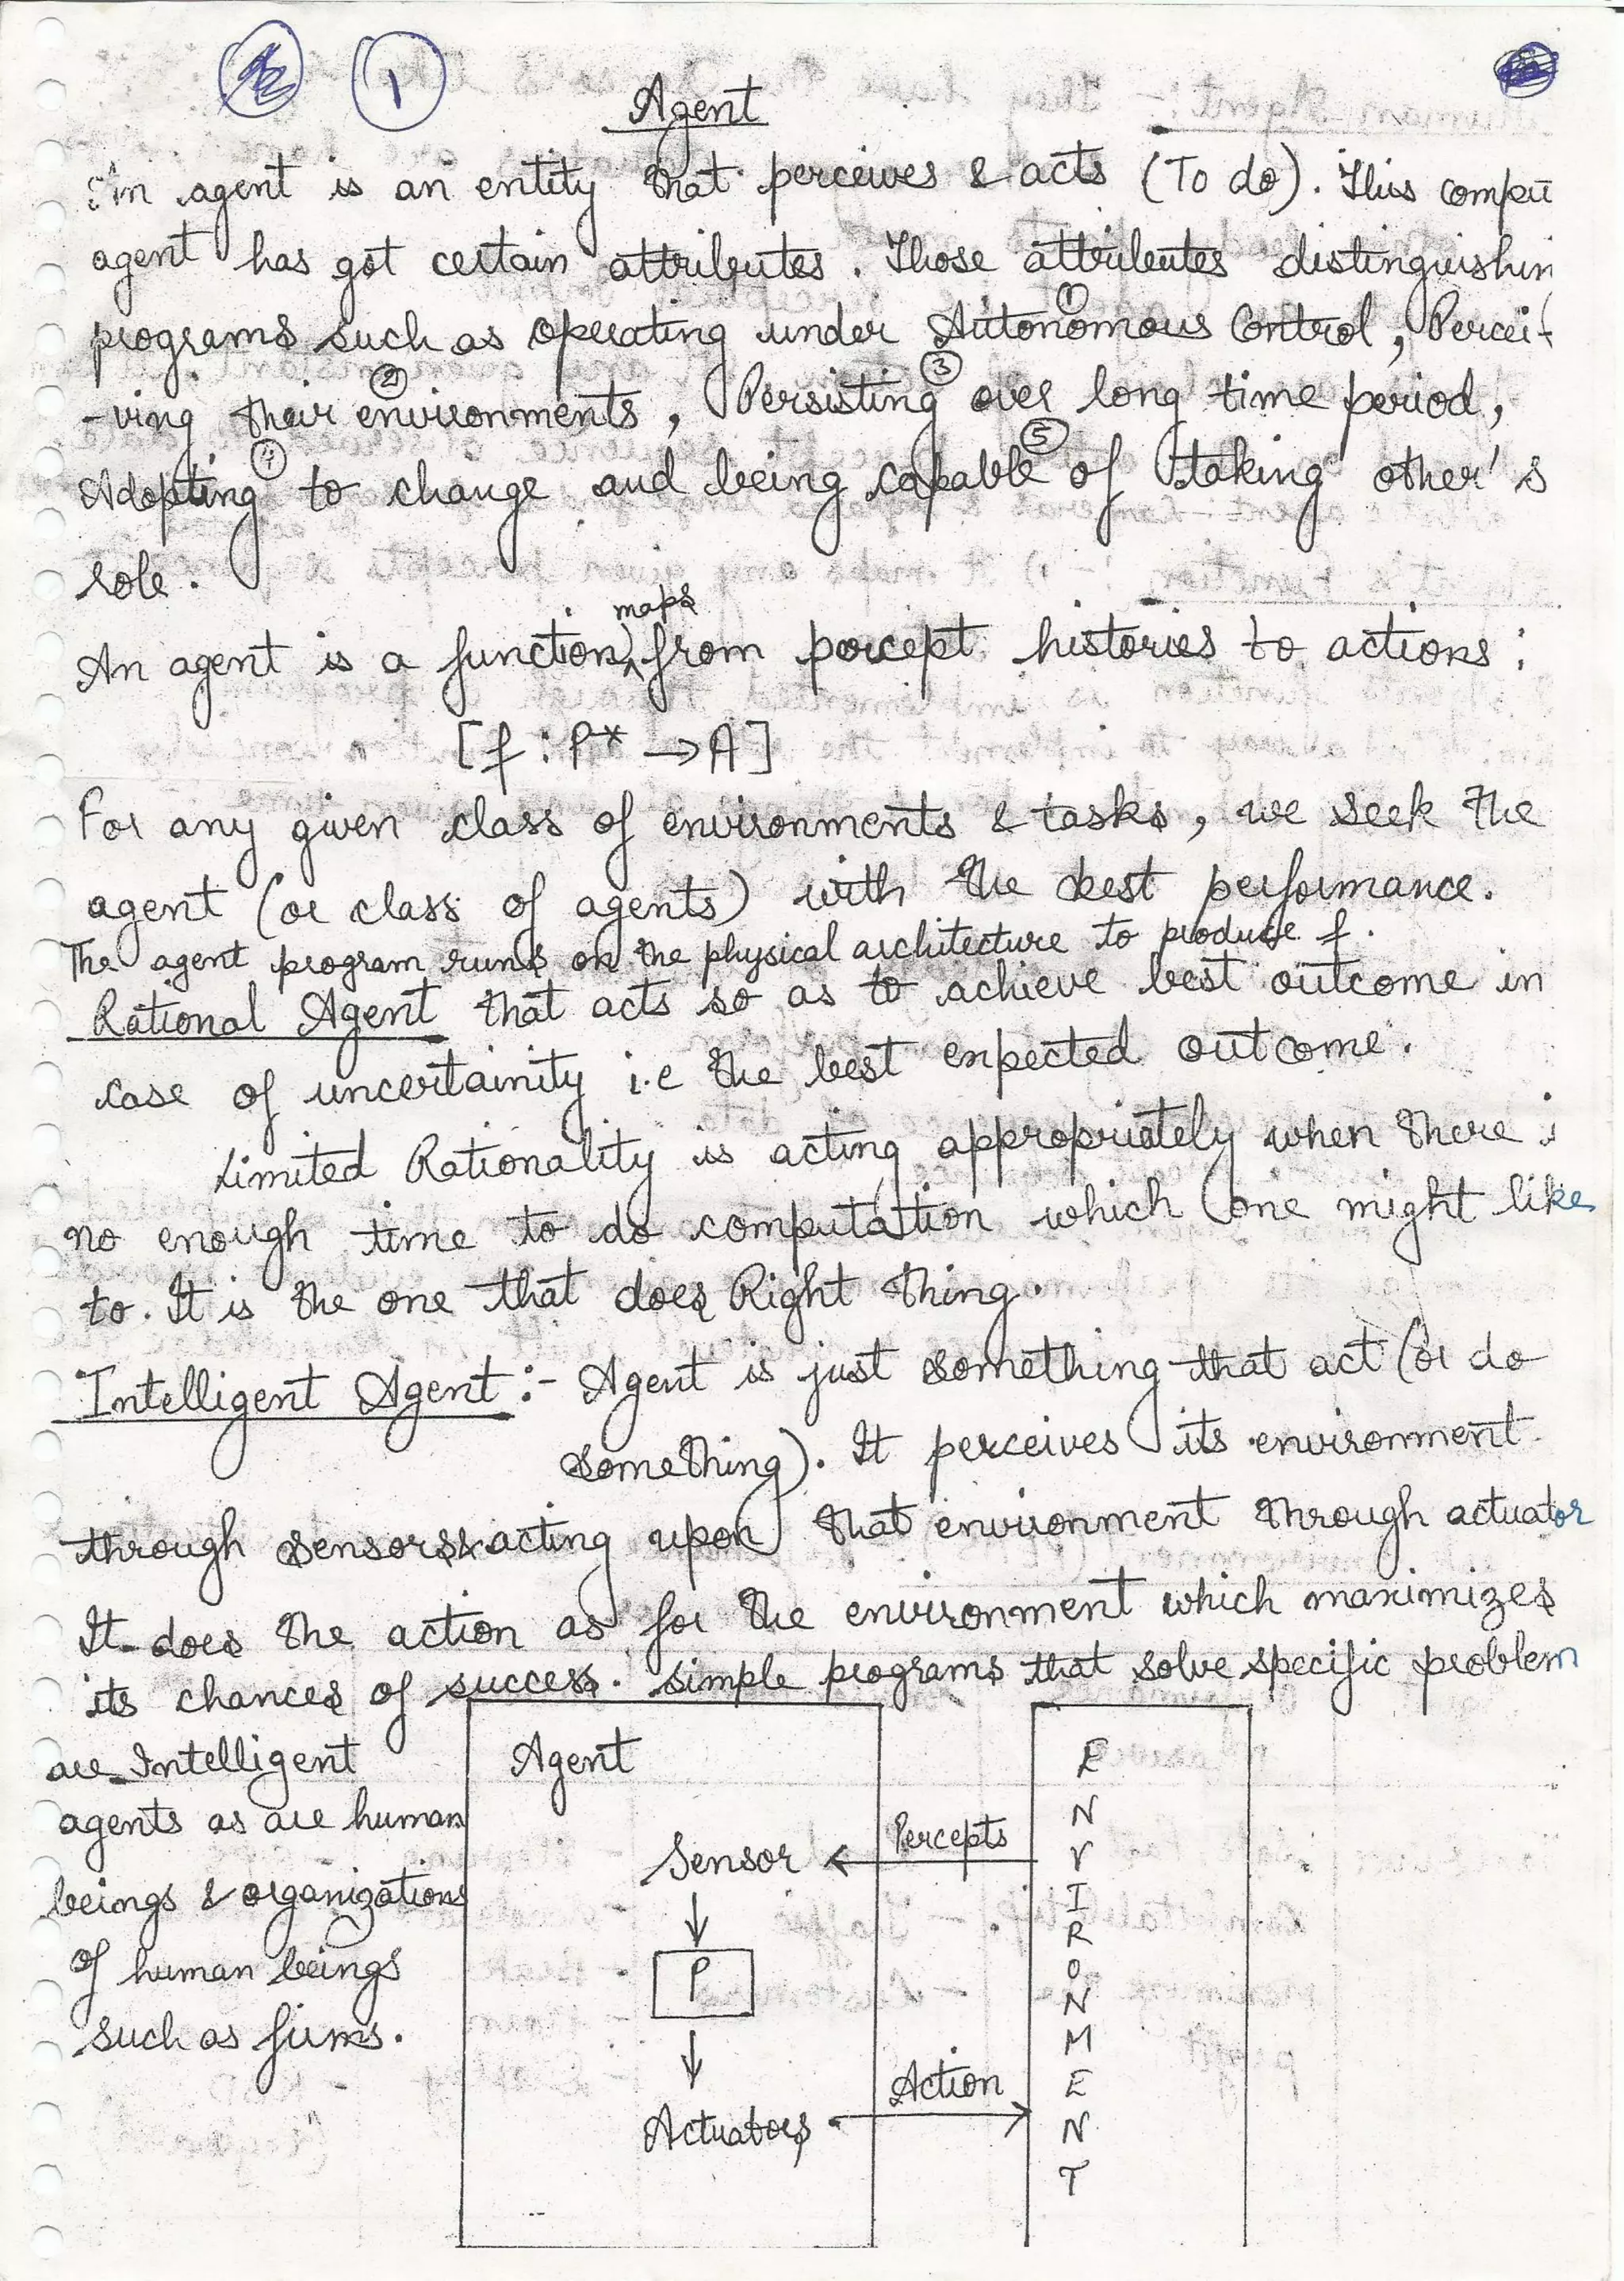 1
Agent
An agent is an entity that perceives & acts (To do). This compu
agent has got certain attributes. Those attributes distinguishin
programs such as operating under Autonomous ① Control, Percei-
-ving their environments ②, Persisting ③ over long time period,
Adopting ④ to change and being capable ⑤ of taking other's
role.
An agent is a function maps from percept histories to actions:
[f : P* → A]
For any given class of environments & tasks, we seek the
agent (or class of agents) with the best performance.
The agent program runs on the physical architecture to produce f.
Rational Agent that acts so as to achieve best outcome in
case of uncertainity i.e the best expected outcome.
Limited Rationality is acting appropriately when there i
no enough time to do computation which one might like
to. It is the one that does Right thing.
Intelligent Agent :- Agent is just something that act (or do
something). It perceives its environment
through sensors & acting upon that environment through actuator
It does the action as for the environment which maximizes
its chances of success. Simple programs that solve specific problem
are Intelligent
agents as are human
beings & organizations
of human beings
such as firms.
Agent
Sensor
P
Actuators
Percepts
Action
ENVIRONMENT